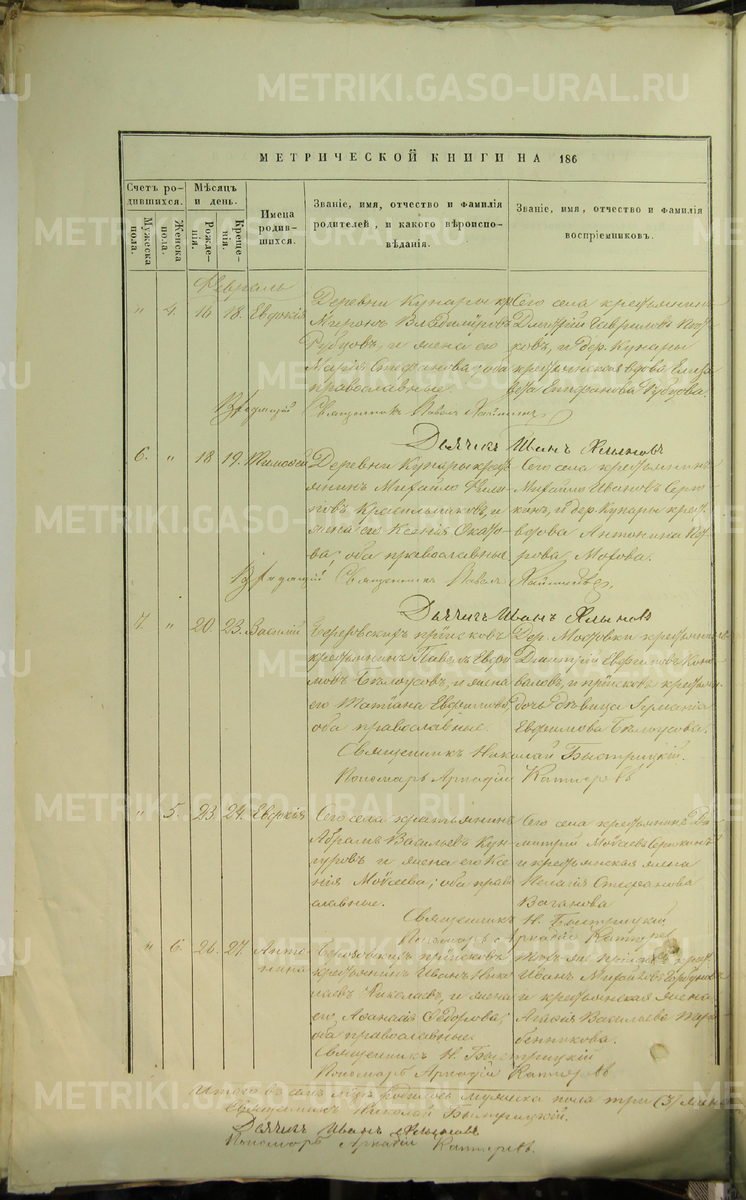 МЕТРИЧЕСКОЙ КНИГИ НА 186
Счетъ ро-
дившихся.
Мужеска
пола.
Женска
пола.
Мѣсяцъ
и день.
Рожде-
нія.
Креще-
нія.
Имена
родив-
шихся.
Званіе, имя, отчество и фамилія
родителей, и какого вѣроиспо-
вѣданія.
Званіе, имя, отчество и фамилія
воспріемниковъ.
Февраль
" 4. 16 18. Евдокія
Деревни Кунары кр
Миронъ Владиміровъ
Рубцовъ, и жена его
Марія Стефанова; оба
православные.
Сего села крестьянинъ
Димитрій Гавриловъ
ковъ, и дер. Кунары
крестьянская вдова Елиса
Епифанова Рубцова.
Священникъ Павелъ
Дьячикъ Иванъ Хлыновъ
6. " 18 19. Тимофей
Деревни Кунары крест
янинъ Михайло
новъ Красильниковъ, и
жена его Ксенія
ва; оба православные.
Сего села крестьянинъ
Михайло Ивановъ Серко
канъ, и дер. Кунары крест
вдова Антонина
рова Мохова.
Священникъ Павелъ
Дьячигъ Иванъ Хлыновъ
7. " 20. 23. Василій
Березовскихъ пріисковъ
крестьянинъ Павелъ Евфи
мовъ Бѣлоусовъ, и жена
его Татіана Евфимова;
оба православные.
Дер. Мостовки крестьянинъ
Димитрій Евфимовъ Коно
валовъ, и пріисковъ крестьян
дочь дѣвица
Евфимова Бѣлоусова.
Священникъ Николай Быстрицкій.
Пономарь Аркадій
" 5. 23. 24. Евдокія
Сего села крестьянинъ
Абрамъ Васильевъ Кун
гуровъ и жена его Ксе
нія Моѵсеева; оба право
славные.
Сего села крестьянинъ Ди
митрій
и крестьянская жена
Пелагія Стефанова
Ваганова
Священникъ Н. Быстрицкій
Пономарь Аркадій
" 6. 26. 27. Анто
нина
Березовскихъ пріисковъ
крестьянинъ Иванъ Нико
лаевъ Николаевъ, и жена
его Афанасія Ѳедорова;
оба православные.
Тѣхъ же пріисковъ крест
Иванъ Михайловъ Горбуновъ
и крестьянская жена
Агафія Васильева
бенникова.
Священникъ Н. Быстрицкій
Пономарь Аркадій
Итого въ семъ м-цѣ родилось мужеска пола три (3) жен
Священникъ Николай Быстрицкій.
Дьячикъ Иванъ Хлыновъ
Пономарь Аркадій
METRIKI.GASO-URAL.RU